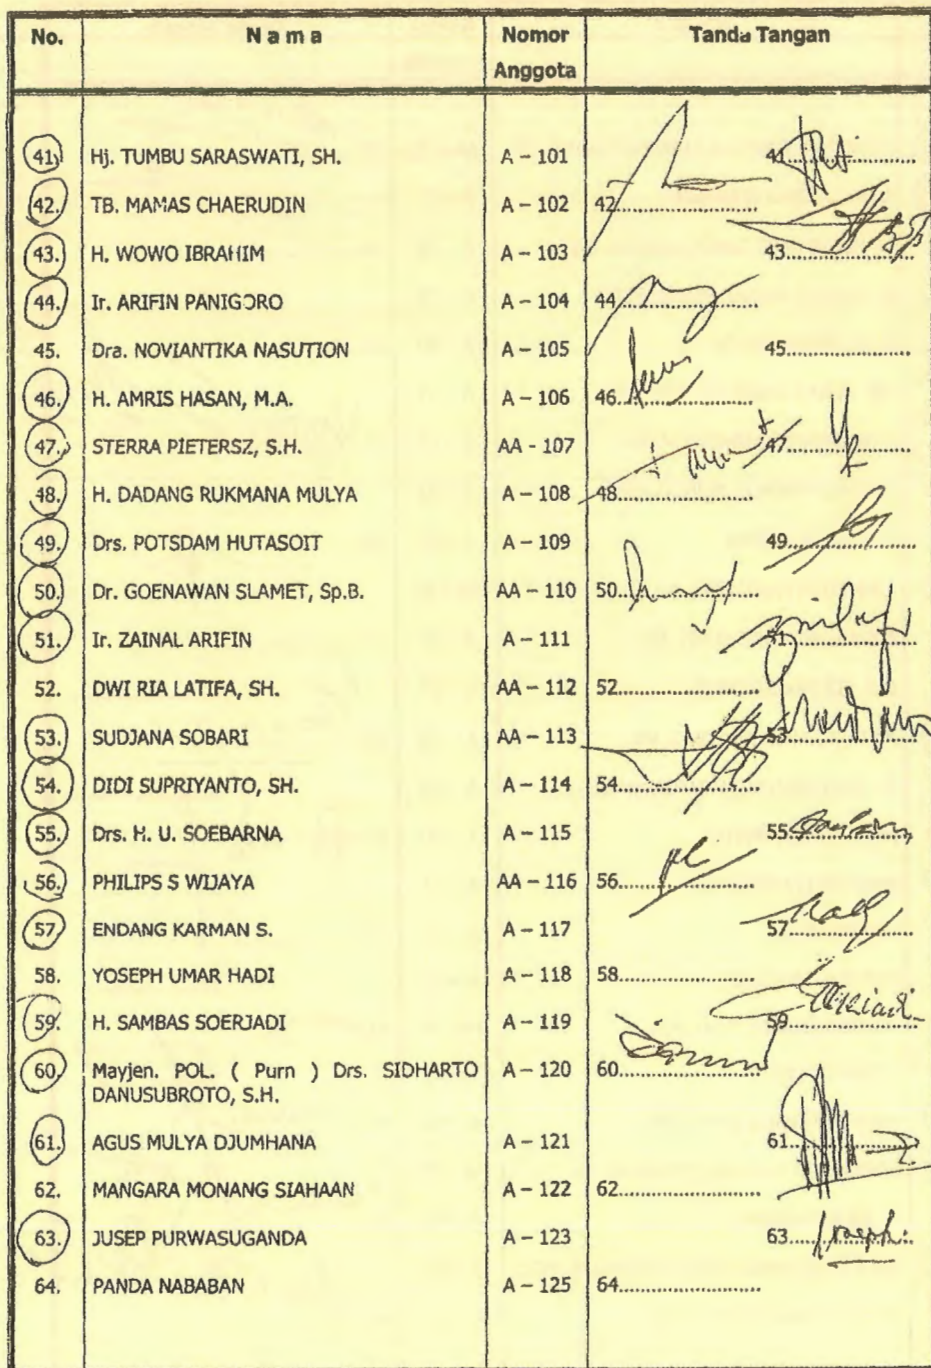 No. Nama Nomor Anggota Tanda Tangan
41. Hj. TUMBU SARASWATI, SH. A – 101 41...............
42. TB. MAMAS CHAERUDIN A – 102 42...............
43. H. WOWO IBRAHIM A – 103 43...............
44. Ir. ARIFIN PANIGORO A – 104 44...............
45. Dra. NOVIANTIKA NASUTION A – 105 45...............
46. H. AMRIS HASAN, M.A. A – 106 46...............
47. STERRA PIETERSZ, S.H. AA - 107 47...............
48. H. DADANG RUKMANA MULYA A – 108 48...............
49. Drs. POTSDAM HUTASOIT A – 109 49...............
50. Dr. GOENAWAN SLAMET, Sp.B. AA – 110 50...............
51. Ir. ZAINAL ARIFIN A – 111 51...............
52. DWI RIA LATIFA, SH. AA – 112 52...............
53. SUDJANA SOBARI AA – 113 53...............
54. DIDI SUPRIYANTO, SH. A – 114 54...............
55. Drs. H. U. SOEBARNA A – 115 55...............
56. PHILIPS S WIJAYA AA – 116 56...............
57. ENDANG KARMAN S. A – 117 57...............
58. YOSEPH UMAR HADI A – 118 58...............
59. H. SAMBAS SOERJADI A – 119 59...............
60. Mayjen. POL. ( Purn ) Drs. SIDHARTO A – 120 60...............
DANUSUBROTO, S.H.
61. AGUS MULYA DJUMHANA A – 121 61...............
62. MANGARA MONANG SIAHAAN A – 122 62...............
63. JUSEP PURWASUGANDA A – 123 63...............
64. PANDA NABABAN A – 125 64...............